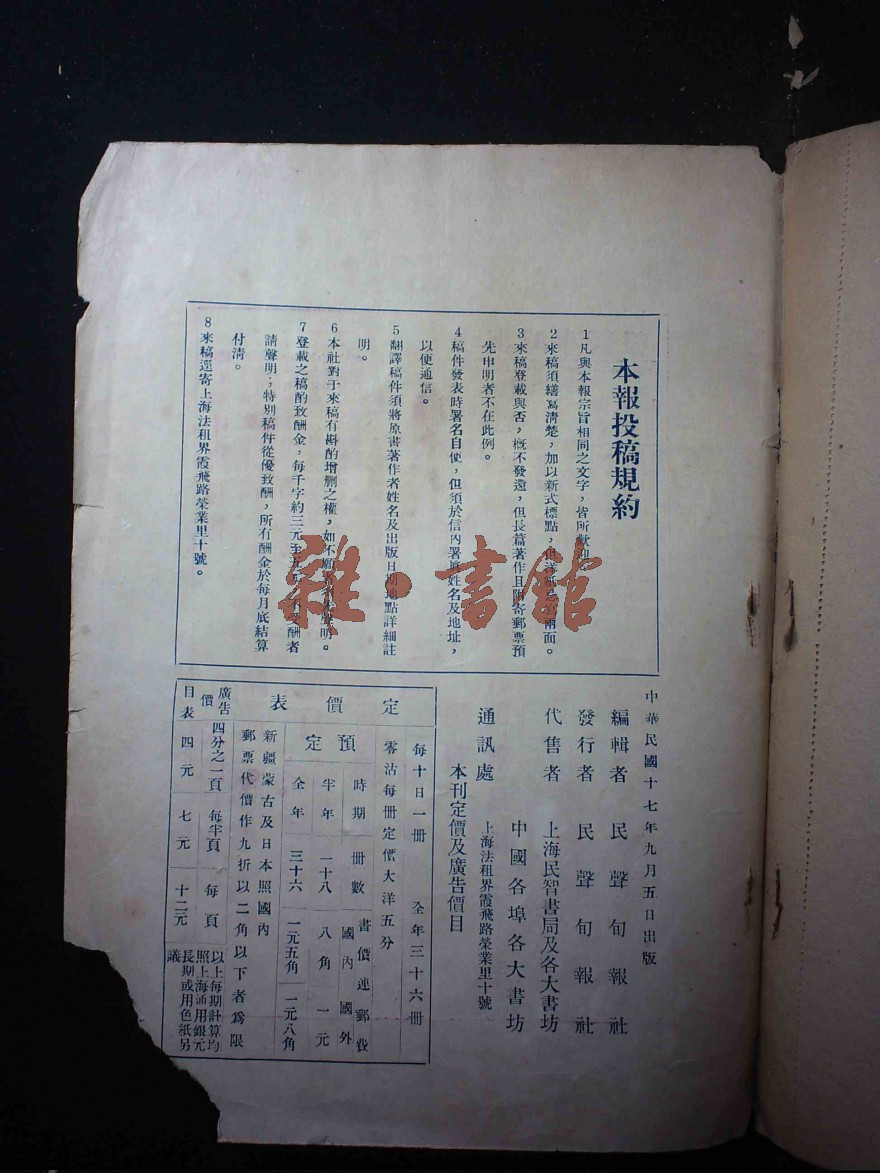 本報投稿規約
1凡與本報宗旨相同之文字，皆所歡迎
2來稿須繕寫清楚，加以新式標點，兩面。
3來稿登載與否，概不發還，但長篇著作且附寄郵票預
先申明者不在此例。
4稿件發表時署名自便，但須於信內署眞姓名及地址，
以便通信。
5翻譯稿件須將原書著作者姓名及出版日期地點詳細註
明。
6本社對于來稿有斟酌增删之權，如不願聲明。
7登載之稿酌致酬金，每千字約三元至五元受酬者
請聲明；特別稿件從優致酬，所有酬金於每月底結算
付清。
8來稿逕寄上海法租界霞飛路榮業里十號。
中華民國十七年九月五日出版
編輯者 民聲旬報社
發行者 民聲旬報社
代售者 上海民智書局及各大書坊
中國各埠各大書坊
通訊處 上海法租界霞飛路榮業里十號
本刊定價及廣告價目
定價表
每十日一冊 全年三十六冊
零沽每冊定價大洋五分
預定
時期 冊數 書價連郵費
國內 國外
半年 一十八 八角 一元
全年 三十六 一元五角 一元八角
新疆蒙古及日本照國內
郵票代價作九折以二角以下者爲限
廣告價目表
四分之一頁 每半頁 每頁
四元 七元 十二元
以上每期計算均
照上海通用銀元
長期或用色紙另
議
雜·書館